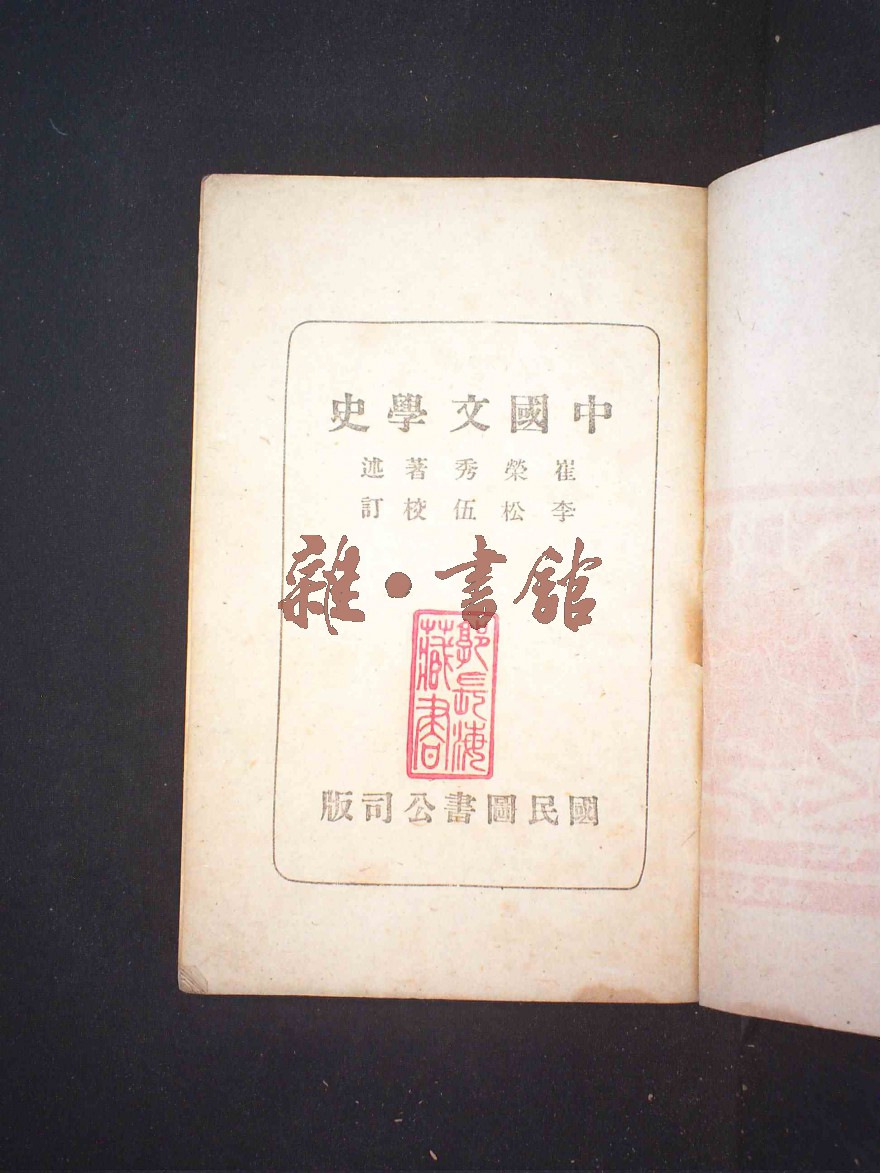 中國文學史
崔榮秀著述
李松伍校訂
雜·書館
郭長海
藏書
國民圖書公司版